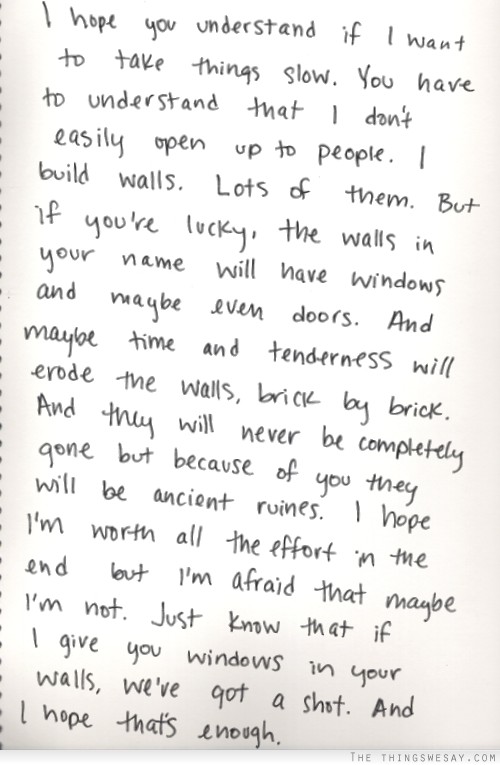 I hope you understand if I want
to take things slow. You have
to understand that I don't
easily open up to people. I
build walls. Lots of them. But
if you're lucky, the walls in
your name will have windows
and maybe even doors. And
maybe time and tenderness will
erode the walls, brick by brick.
And they will never be completely
gone but because of you they
will be ancient ruines. I hope
I'm worth all the effort in the
end but I'm afraid that maybe
I'm not. Just know that if
I give you windows in your
walls, we've got a shot. And
I hope that's enough.
THE THINGSWESAY.COM